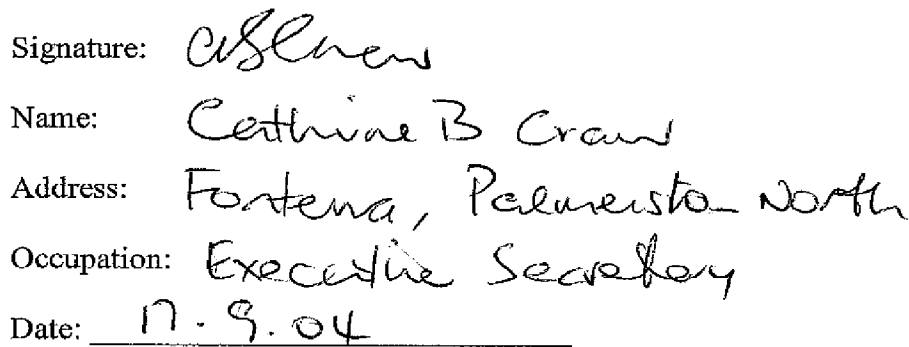 Signature:
Name: Cathrine B Craw
Address: Fonterra, Palmerston North
Occupation: Executive Secretary
Date: 17.9.04